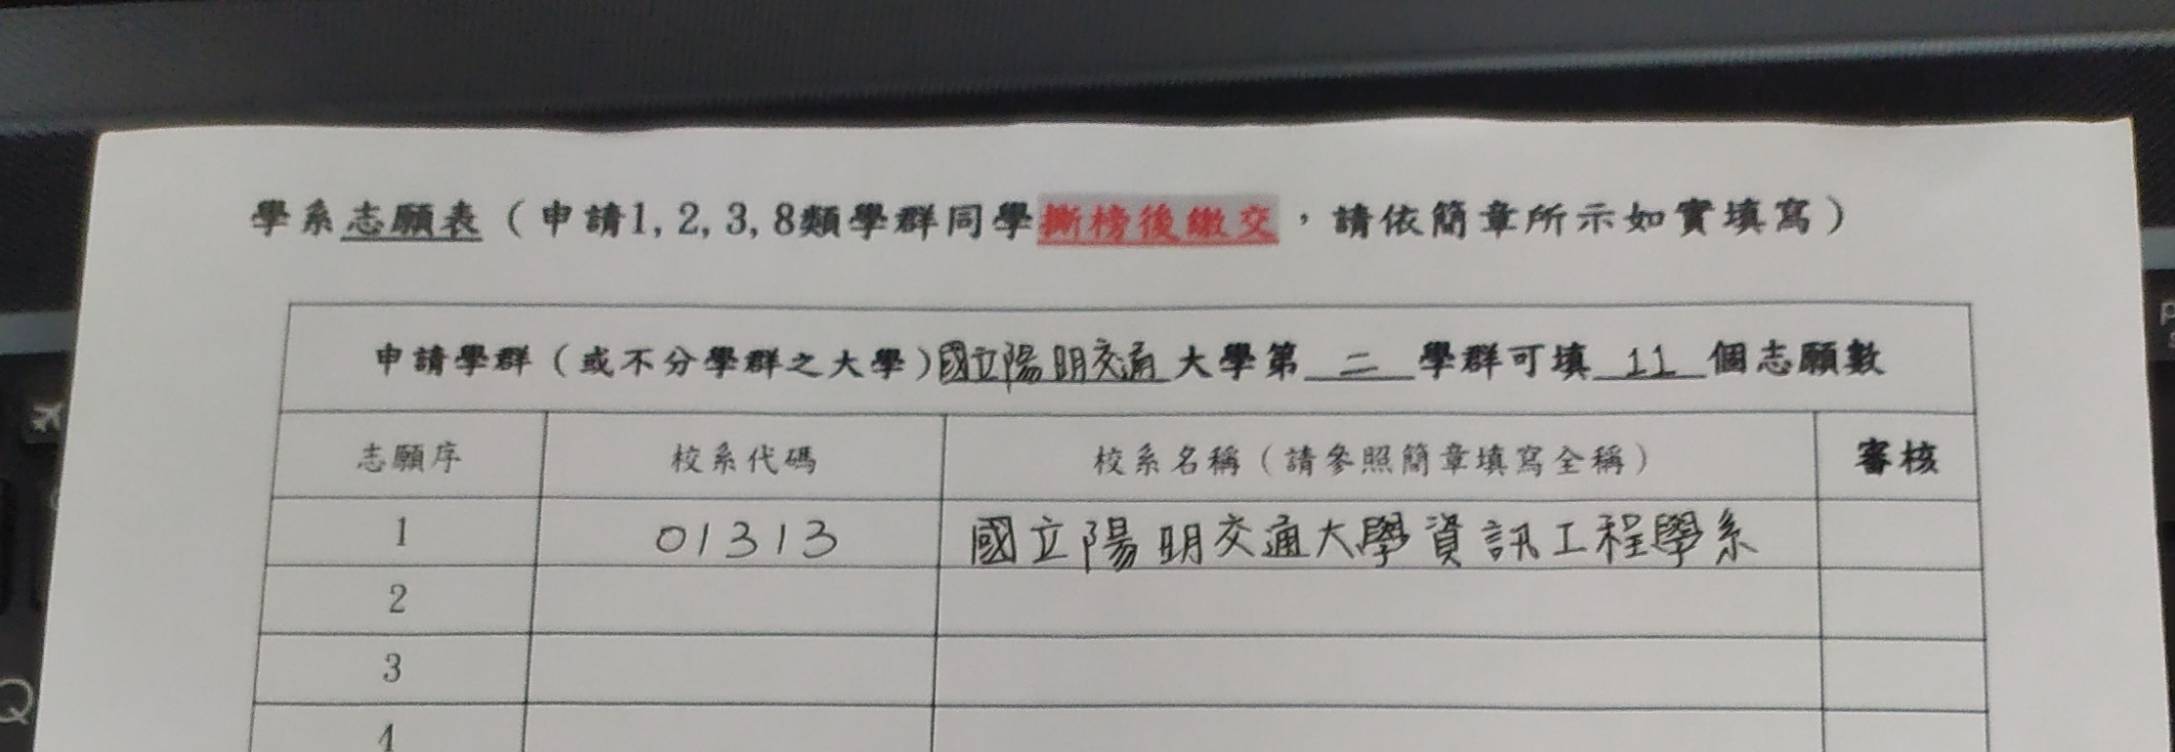 學系志願表（申請1,2,3,8類學群同學撕榜後繳交，請依簡章所示如實填寫）
申請學群（或不分學群之大學)國立陽明交通大學第二學群可填11個志願數
志願序 校系代碼 校系名稱（請參照簡章填寫全稱） 審核
1 01313 國立陽明交通大學資訊工程學系
2
3
4
Q